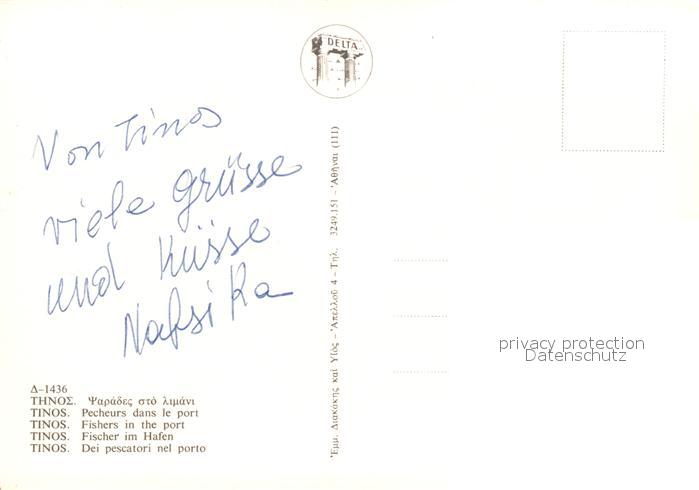 DELTA
Von Tinos
viele Grüsse
und Küsse
Nafsika
Δ-1436
ΤΗΝΟΣ. Ψαράδες στό λιμάνι
TINOS. Pecheurs dans le port
TINOS. Fishers in the port
TINOS. Fischer im Hafen
TINOS. Dei pescatori nel porto
Ἐμμ. Διακάκης καί Υἱός - Ἀπελλοῦ 4 - Τηλ. 3249.151 - Ἀθῆναι (111)
privacy protection
Datenschutz